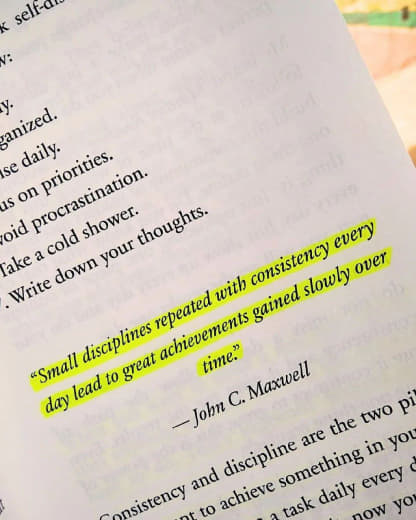 k self-dis
w:
y.
ganized.
ise daily.
us on priorities.
void procrastination.
Take a cold shower.
. Write down your thoughts.
“Small disciplines repeated with consistency every
day lead to great achievements gained slowly over
time.”
— John C. Maxwell
Consistency and discipline are the two pil
nt to achieve something in you
a task daily every d
now you